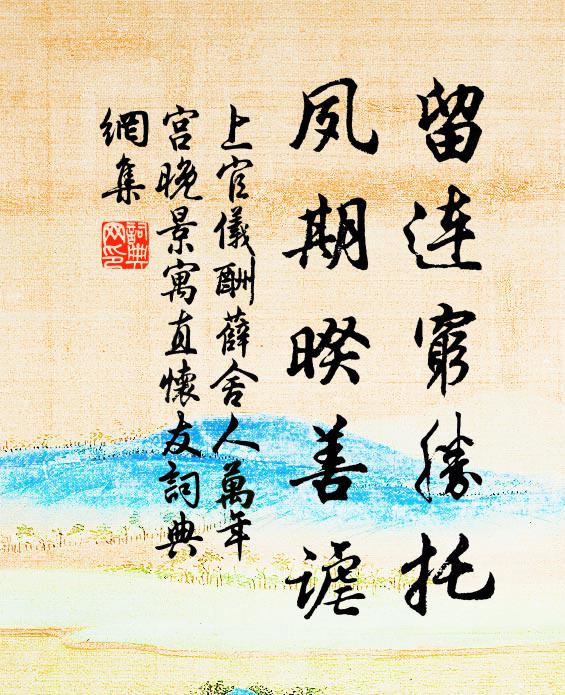 留連窮勝托
夙期暌善謔
上官儀酬薛舍人萬年
宮晚景寓直懷友詞典
網集
詞典
網印